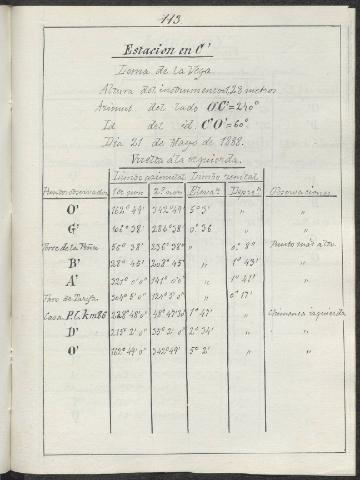 113
Estacion en C'
Loma de la Vega
Altura del instrumento=1,28 metros
Azimut del lado O'C'=240°
Id del id. C'O'=60°
Dia 21 de Mayo de 1888.
Vuelta á la izquierda.
Limbo azimutal Limbo zenital
Puntos observados 1er non 2º non Elevaon Depreon Observaciones
O' 162° 49' 342° 49' 5° 3' " "
G' 38' 284° 38' 0° 36 " "
Torre de la Peña 56° 38' 236° 38' " 0° 8" Punto más alto
B' 28° 45' 208° 45' " 1° 43' "
A' 321° 0' 0" 141° 0' 0" " 1° 41' "
Faro de Tarifa 304° 5' 0" 124° 5' 0" " 0° 17'
Casa P.C. km 86 228° 48' 0" 48° 47' 30" 1° 47' " Chimenea izquierda
D' 213° 2' 0" 33° 2' 0" 2° 34' " "
O' 162° 49' 0" 342° 49' 5° 2' " "